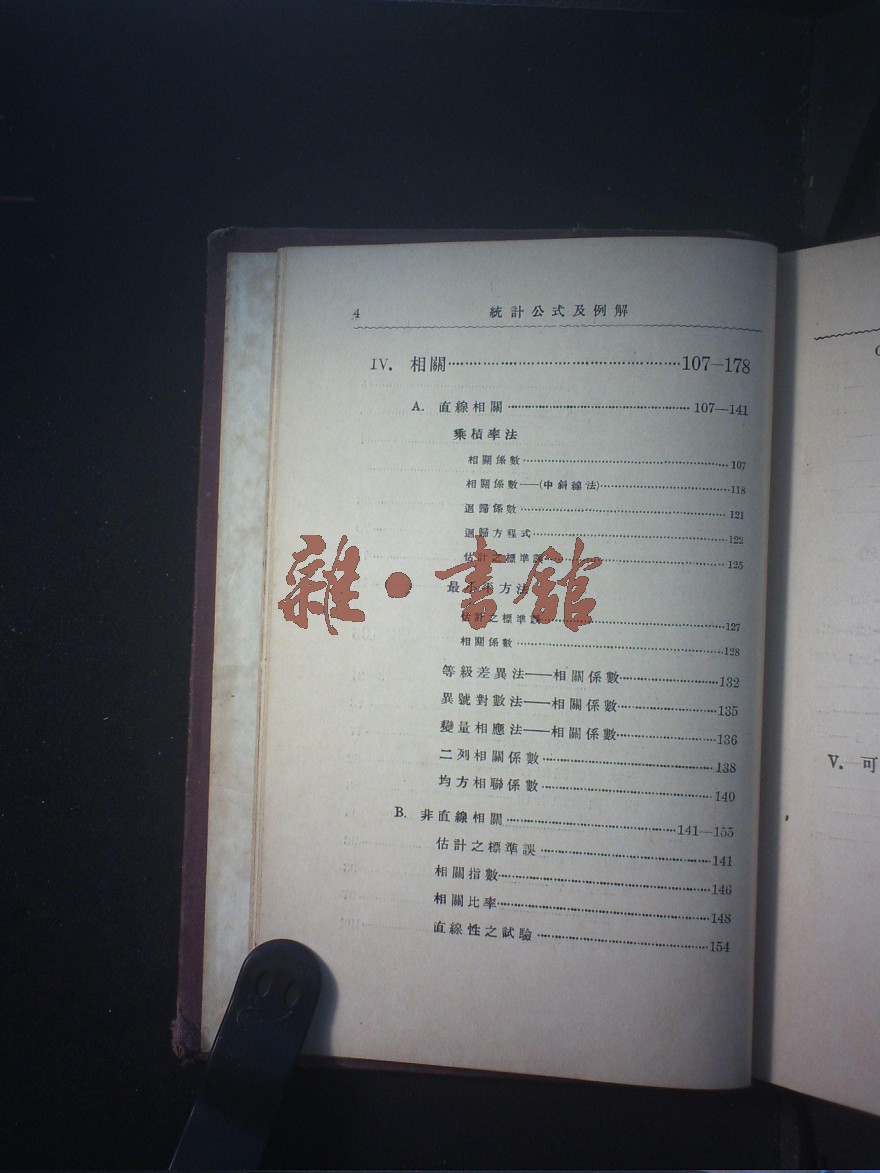 4 統計公式及例解
IV. 相關……107—178
A. 直線相關……107—141
乘積率法
相關係數……107
相關係數——(中斜線法)……118
迴歸係數……121
迴歸方程式……122
估計之標準誤……125
最小平方法
估計之標準誤……127
相關係數……128
等級差異法——相關係數……132
異號對數法——相關係數……135
變量相應法——相關係數……136
二列相關係數……138
均方相聯係數……140
B. 非直線相關……141—155
估計之標準誤……141
相關指數……146
相關比率……148
直線性之試驗……154
雜·書館
V. 可